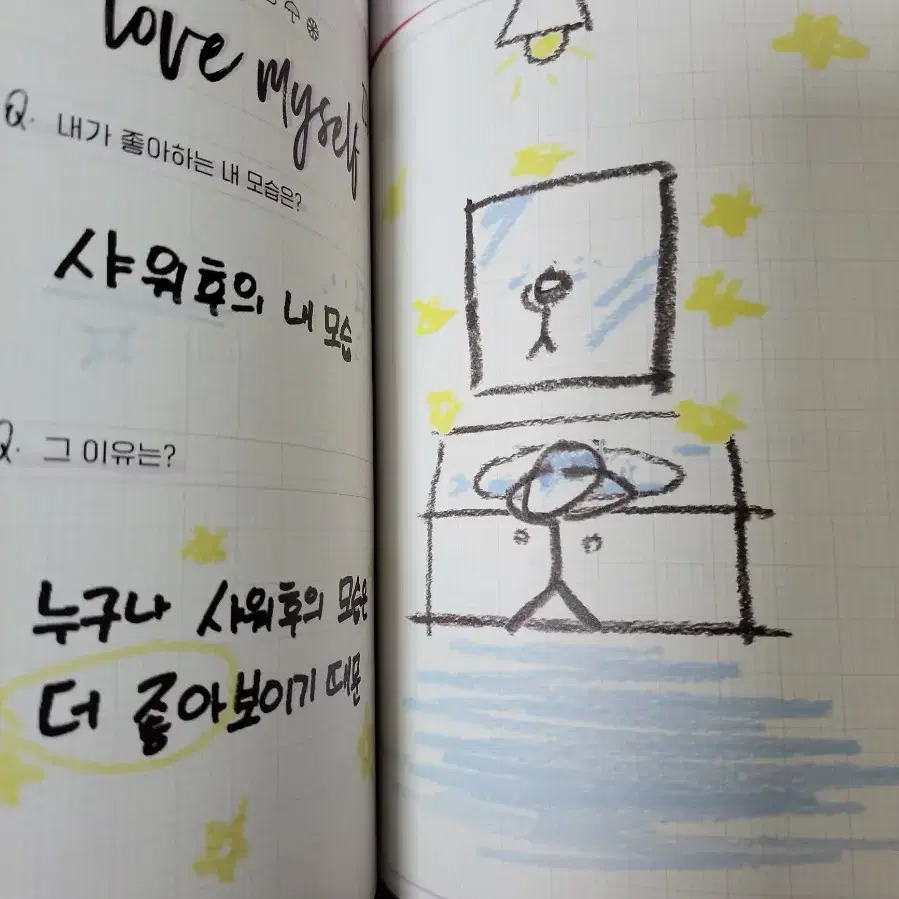 love myself
Q. 내가 좋아하는 내 모습은?
샤워후의 내 모습
Q. 그 이유는?
누구나 샤워후의 모습은
더 좋아보이기 때문